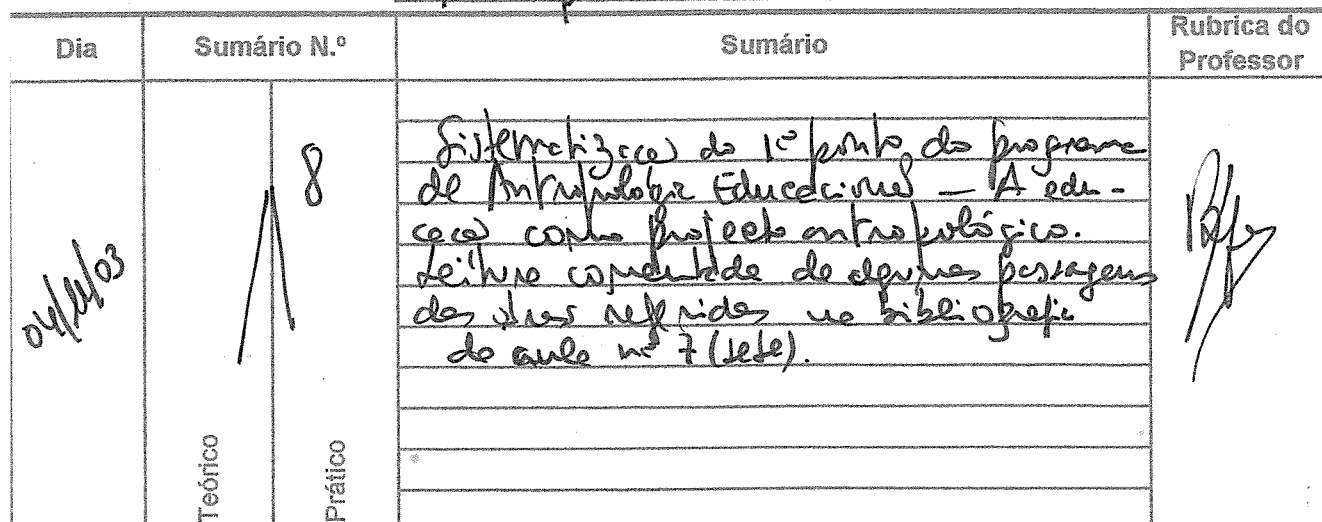 Dia
Sumário N.º
Sumário
Rubrica do
Professor
04/11/03
8
Sistematização do 1º ponto do programa
de Antropologia Educacional — A edu-
cação como projecto antropológico.
Leitura comentada de algumas passagens
das obras referidas na bibliografia
da aula nº 7 (sete).
Teórico
Prático